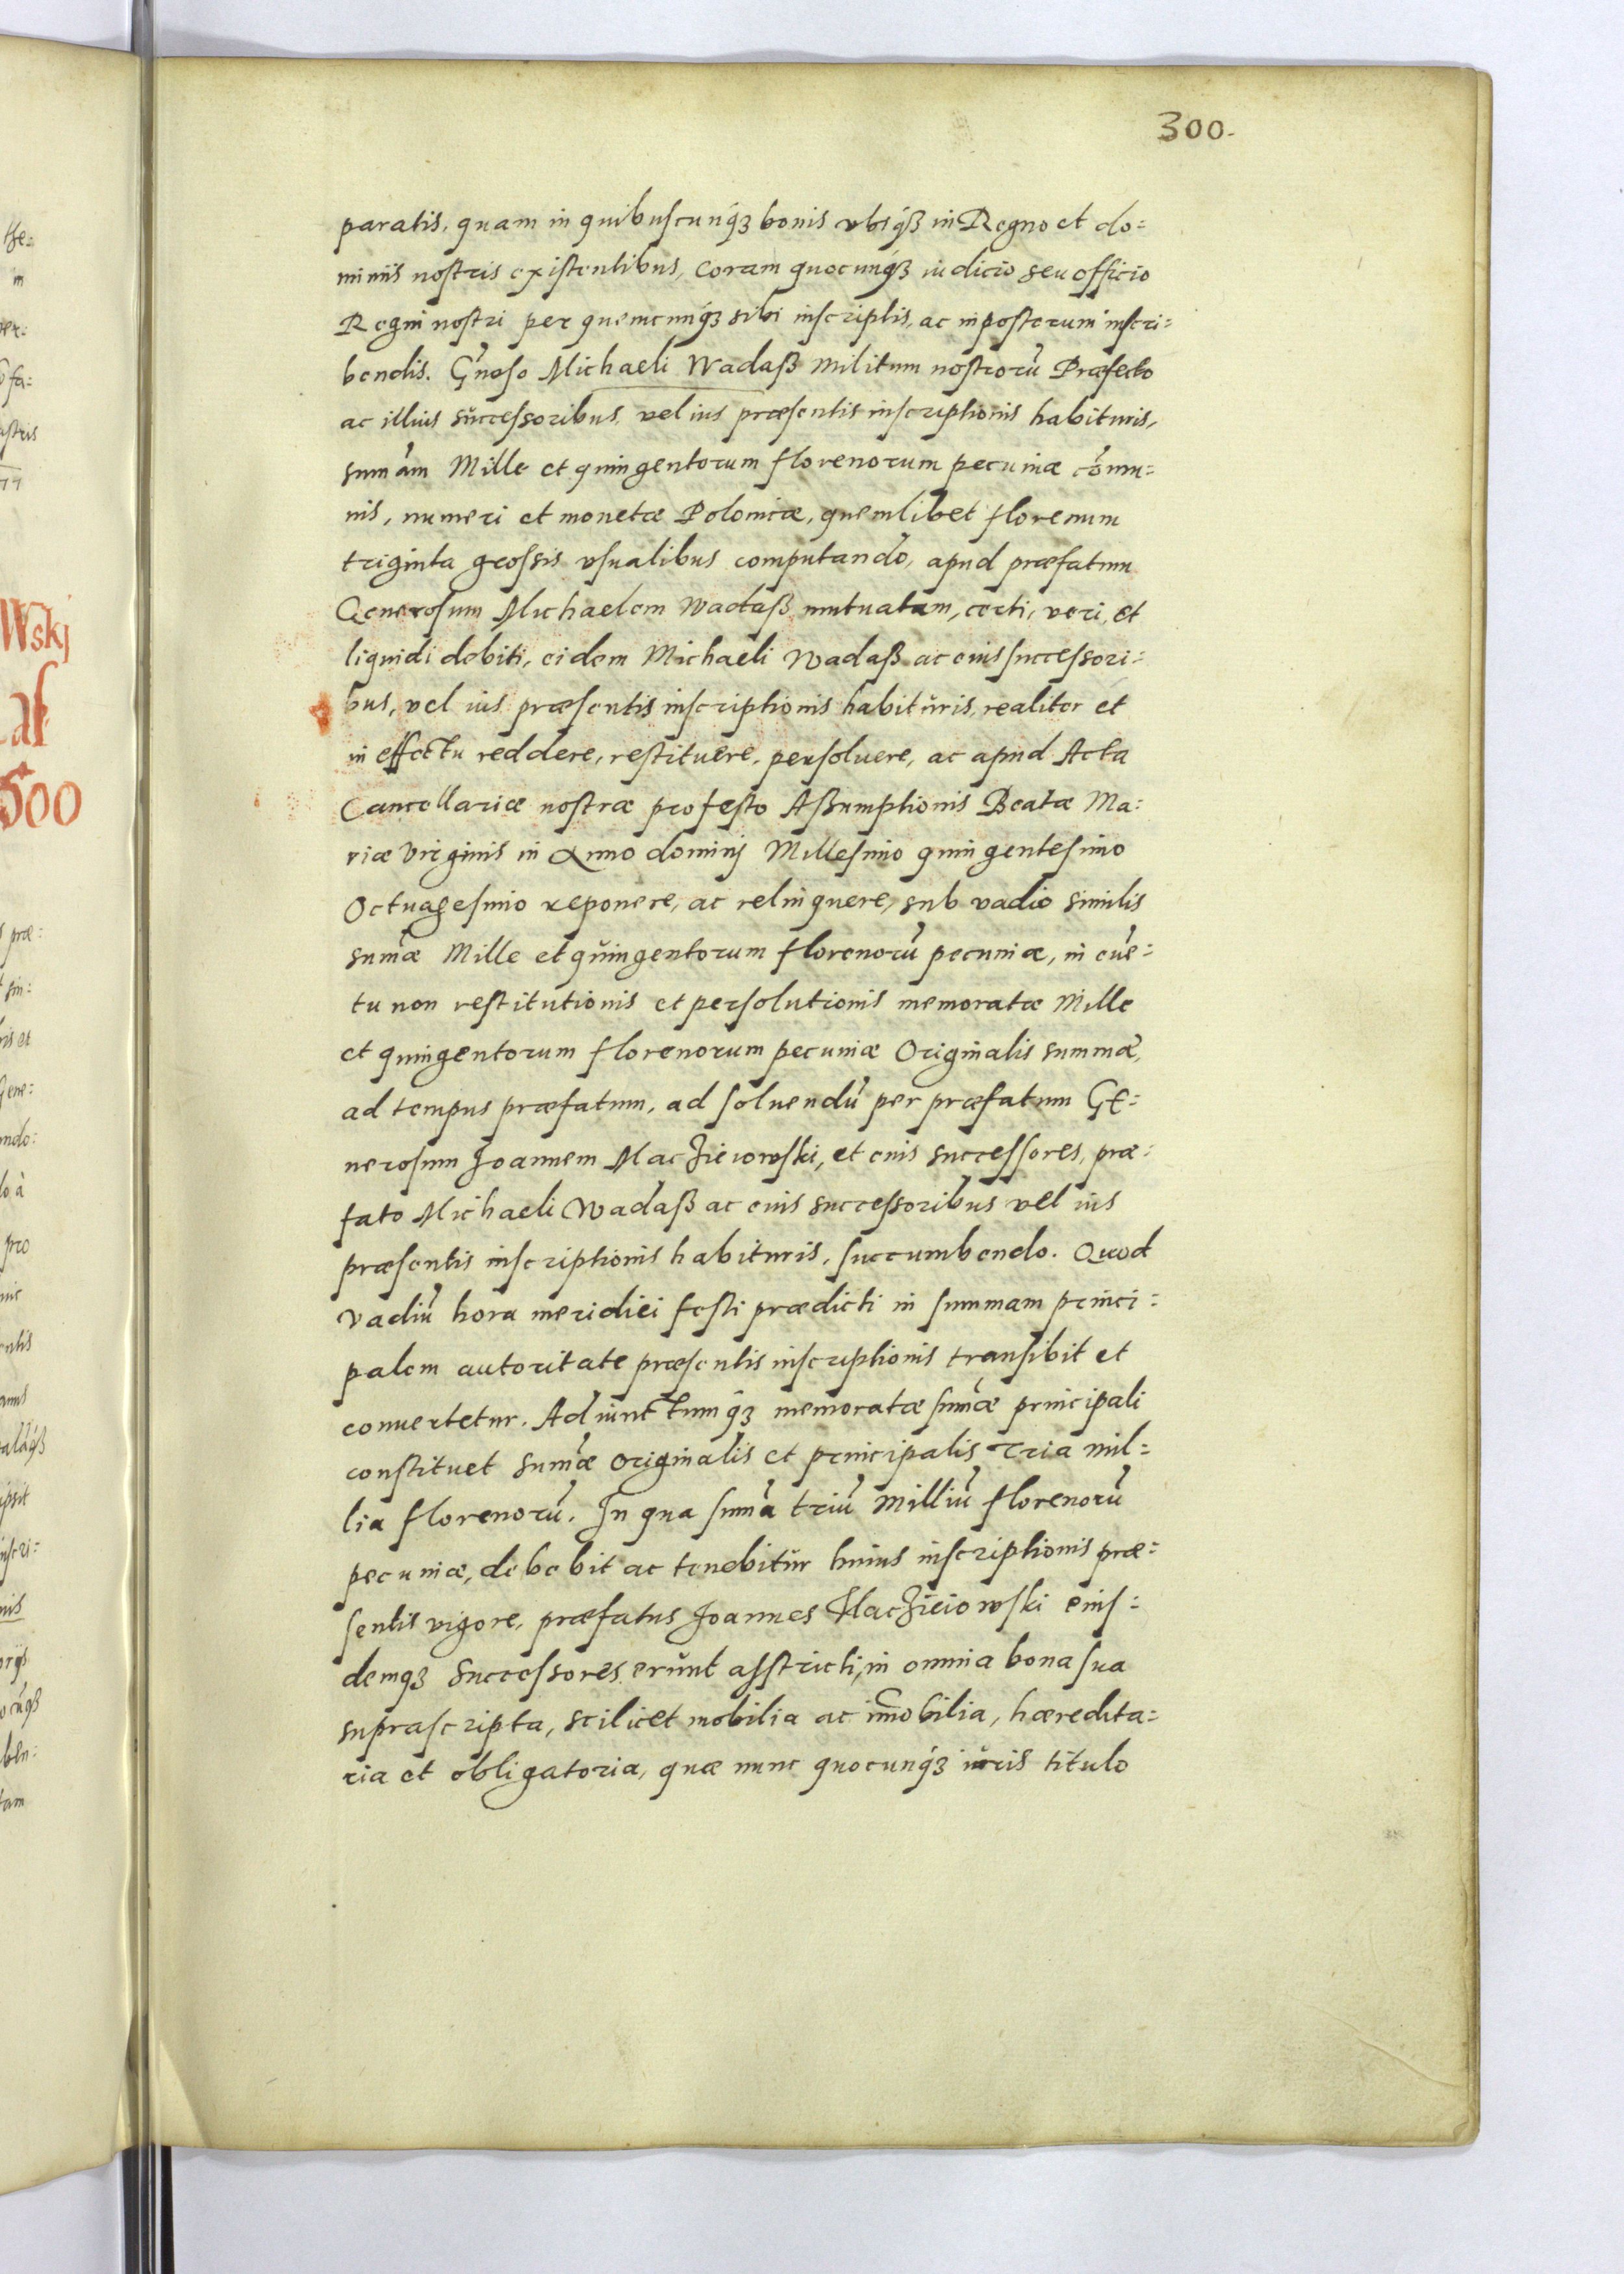 300.
paratis, quam in quibuscunq́ꝫ bonis vbiq́ꝫ in Regno et do=
minijs nostris existentibus, coram quocunq́ꝫ iudicio seu officio
Regni nostri per quemcunq́ꝫ sibi inscriptis, ac inposterum inscri=
bendis. Gñoso Michaeli Wadaß militum nostrorũ Præfecto
ac illius successoribus, vel ius præsentis inscriptionis habituris,
sum̃am Mille et quingentorum florenorum pecuniæ com̃u=
nis, numeri et monetæ Polonicæ, quemlibet florenum
triginta grossis vsualibus computando, apud præfatum
Generosum Michaelem Wadaß mutuatam, certi, veri, et
liquidi debiti, eidem Michaeli Wadaß ac eius successori=
bus, vel ius præsentis inscriptionis habituris, realiter et
in effectu reddere, restituere, persoluere, ac apud Acta
Cancellariæ nostræ pro festo Aßumptionis Beatæ Ma=
riæ Virginis in Anno dominj Millesimo quingentesimo
Octuagesimo reponere, ac relinquere, sub vadio similis
sum̃æ Mille et quingentorum florenorũ pecuniæ, in euẽ=
tu non restitutionis et persolutionis memoratæ Mille
et quingentorum florenorum pecuniæ Originalis summæ,
ad tempus præfatum, ad soluendũ per præfatum Ge=
nerosum Joannem Maczieiowski, et eius successores, præ=
fato Michaeli Wadaß ac eius successoribus vel ius
præsentis inscriptionis habituris, succumbendo. Quod
vadiũ hora meridiei festi prædicti in summam princi=
palem autoritate præsentis inscriptionis transibit et
conuertetur. Adiunctumq́ꝫ memoratæ sum̃æ principali
constituet sum̃æ originalis et principalis Tria mil=
lia florenorũ. In qua sum̃a triũ milliũ florenorũ
pecuniæ, debebit ac tenebitur huius inscriptionis præ=
sentis vigore, præfatus Joannes Maczieiowski eius=
demqꝫ successores erunt asstricti, in omnia bona sua
suprascripta, scilicet mobilia ac im̃obilia, hæredita=
ria et obligatoria, quæ nunc quocunq́ꝫ iuris titulo
Wskj
500